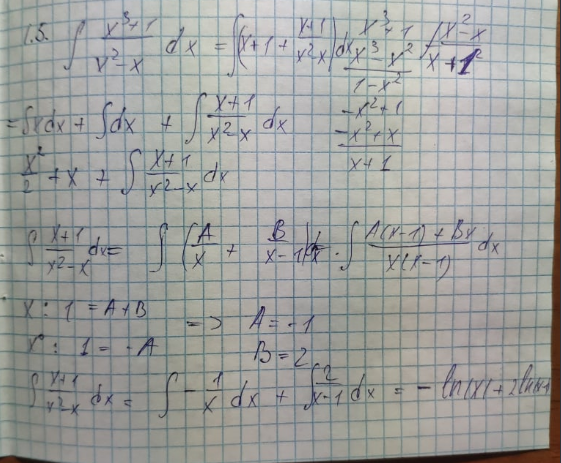 1.5. ∫ x³+1 / x²-x dx = ∫(x+1+ x+1 / x²-x) dx
x³+1 | x²-x
x³-x² | x+1
1-x²
-x²+1
-x²+x
x+1
= ∫xdx + ∫dx + ∫ x+1 / x²-x dx
x²/2 + x + ∫ x+1 / x²-x dx
∫ x+1 / x²-x dx = ∫ (A/x + B / x-1) dx = ∫ A(x-1)+Bx / x(x-1) dx
x: 1 = A+B => A = -1
x⁰: 1 = -A B = 2
∫ x+1 / x²-x dx = ∫ - 1/x dx + ∫ 2 / x-1 dx = - ln|x| + 2ln|x-1